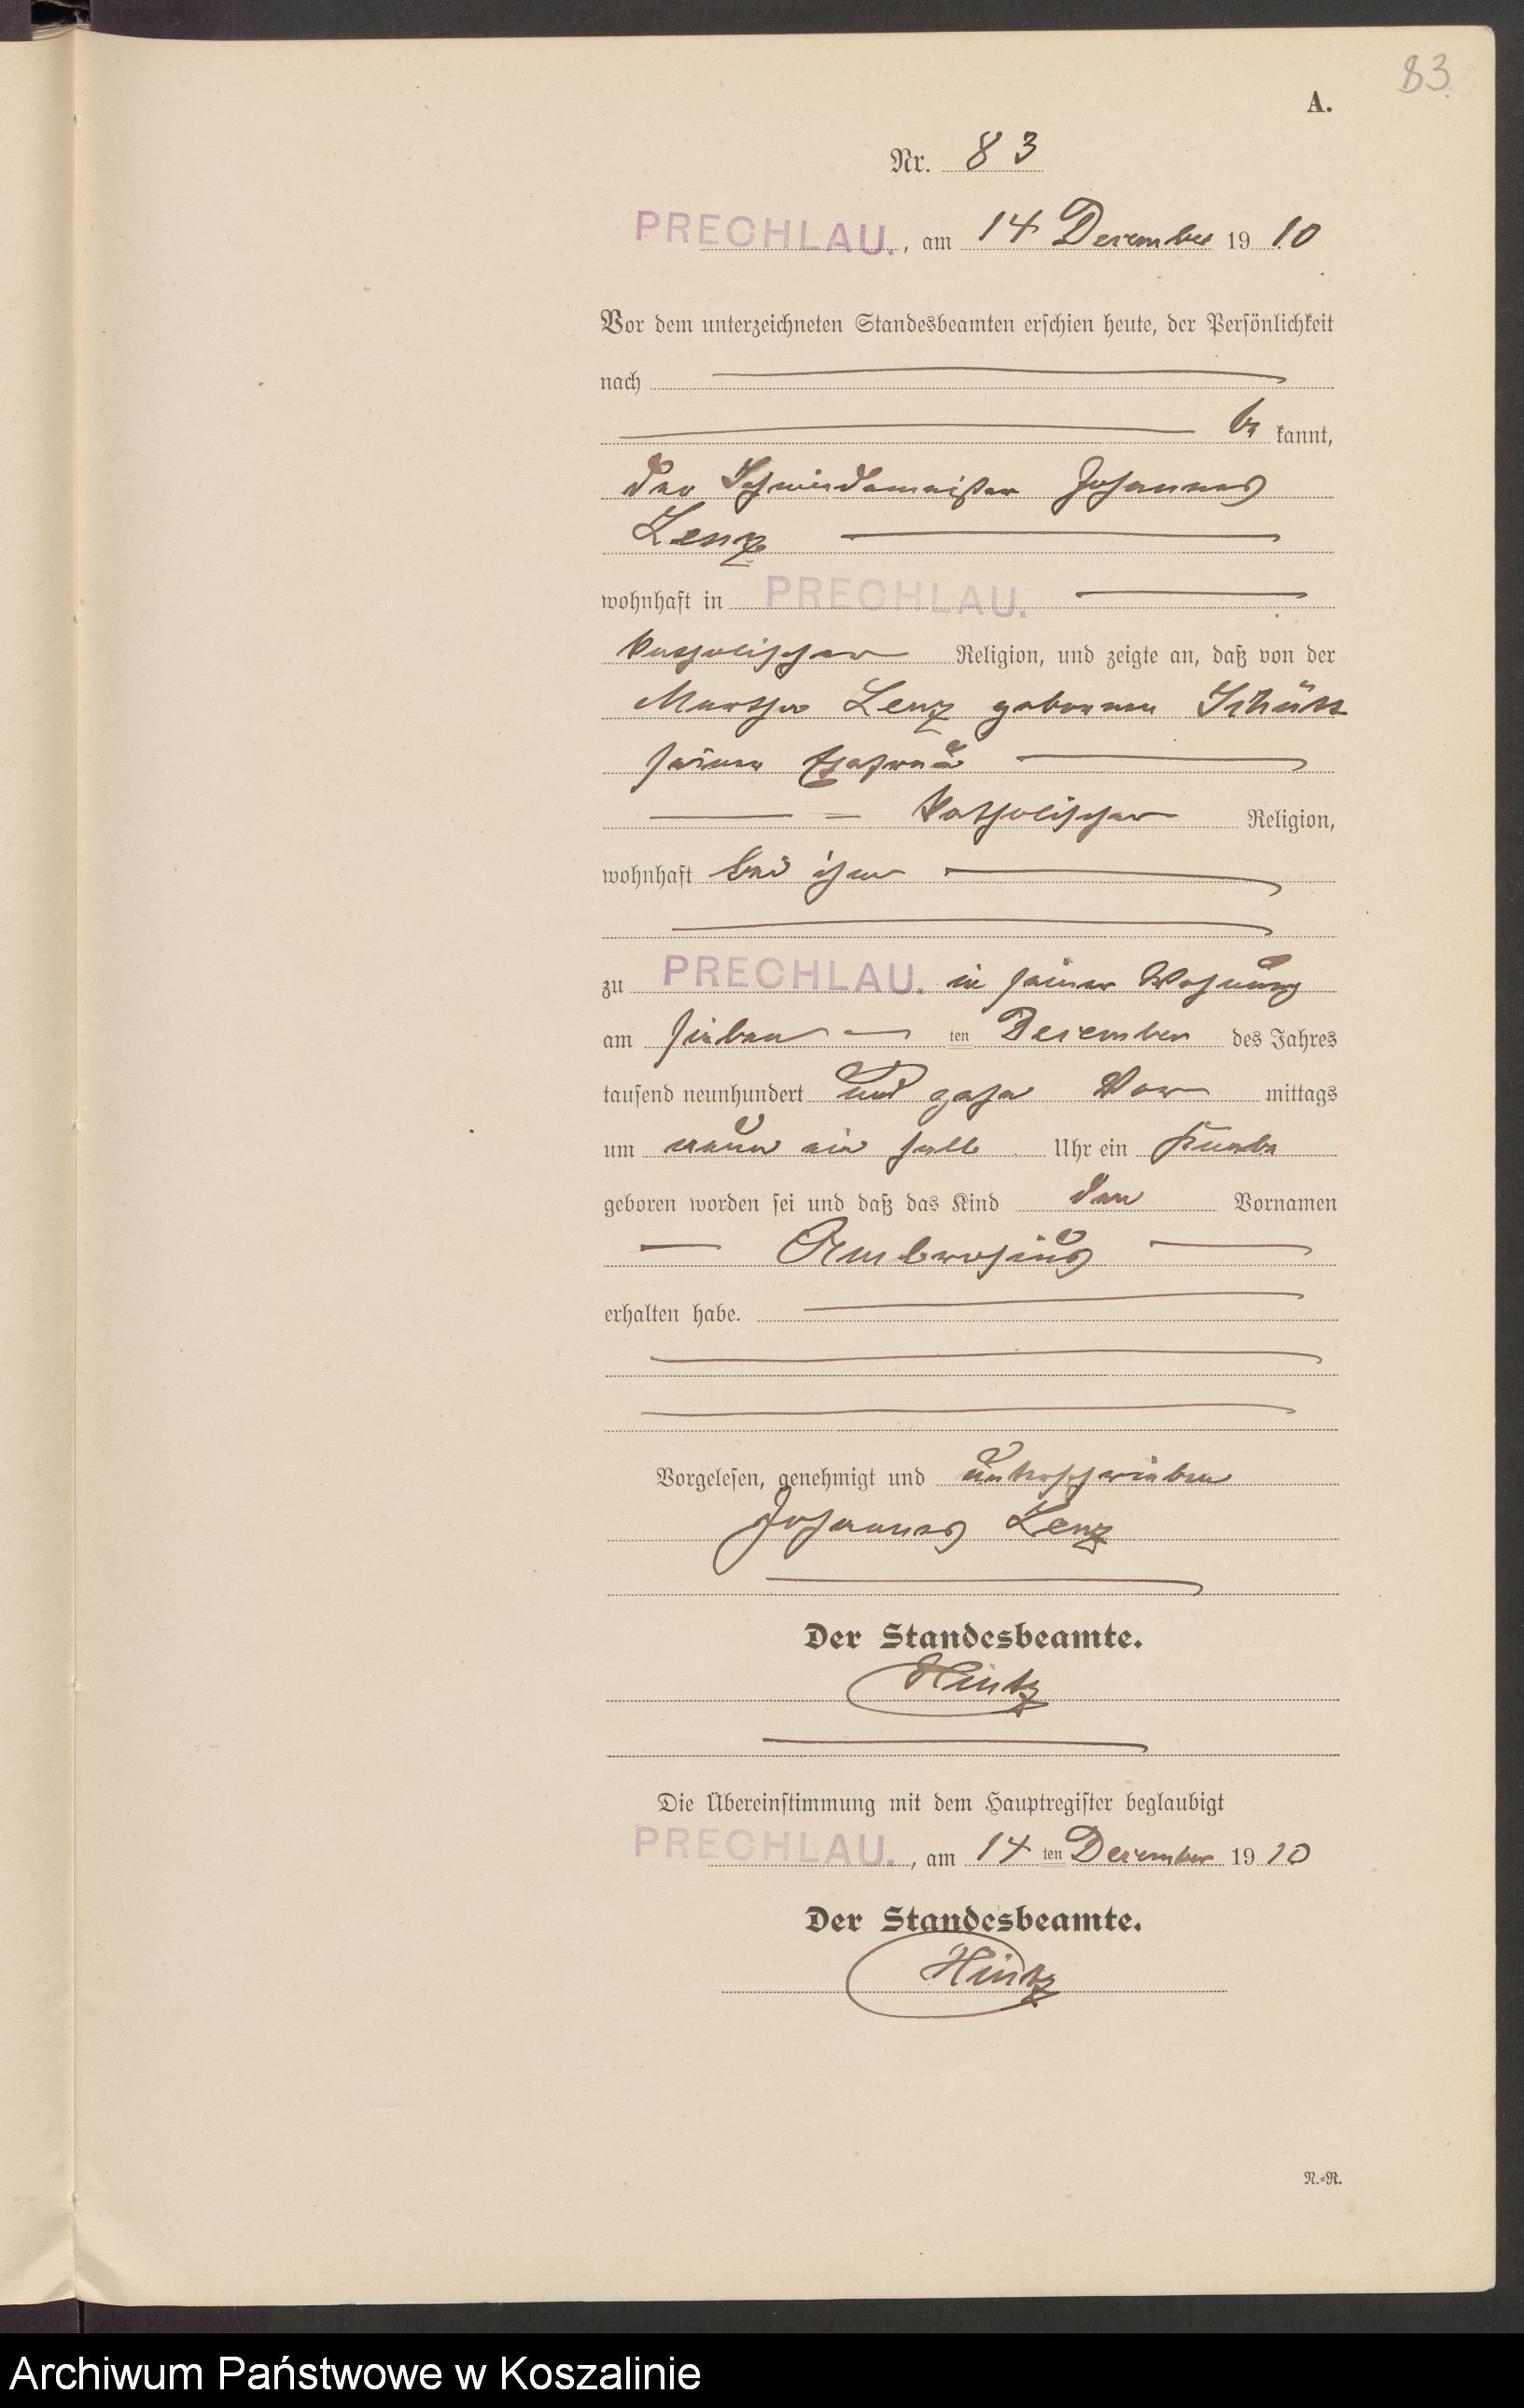 83
A.
Nr. 83
PRECHLAU., am 14 Dezember 1910
Vor dem unterzeichneten Standesbeamten erschien heute, der Persönlichkeit
nach
be kannt,
der Schmiedemeister Johannes
Lenz
wohnhaft in PRECHLAU.
katholischer Religion, und zeigte an, daß von der
Martha Lenz geborenen Schütt
seiner Ehefrau
katholischer Religion,
wohnhaft bei ihm
zu PRECHLAU. in seiner Wohnung
am sieben ten Dezember des Jahres
tausend neunhundert und zehn Vor mittags
um neun ein halb Uhr ein Knabe
geboren worden sei und daß das Kind den Vornamen
Ambrosius
erhalten habe.
Vorgelesen, genehmigt und unterschrieben
Johannes Lenz
Der Standesbeamte.
Hintz
Die Übereinstimmung mit dem Hauptregister beglaubigt
PRECHLAU., am 14 ten Dezember 1910
Der Standesbeamte.
Hintz
N.=R.
Archiwum Państwowe w Koszalinie